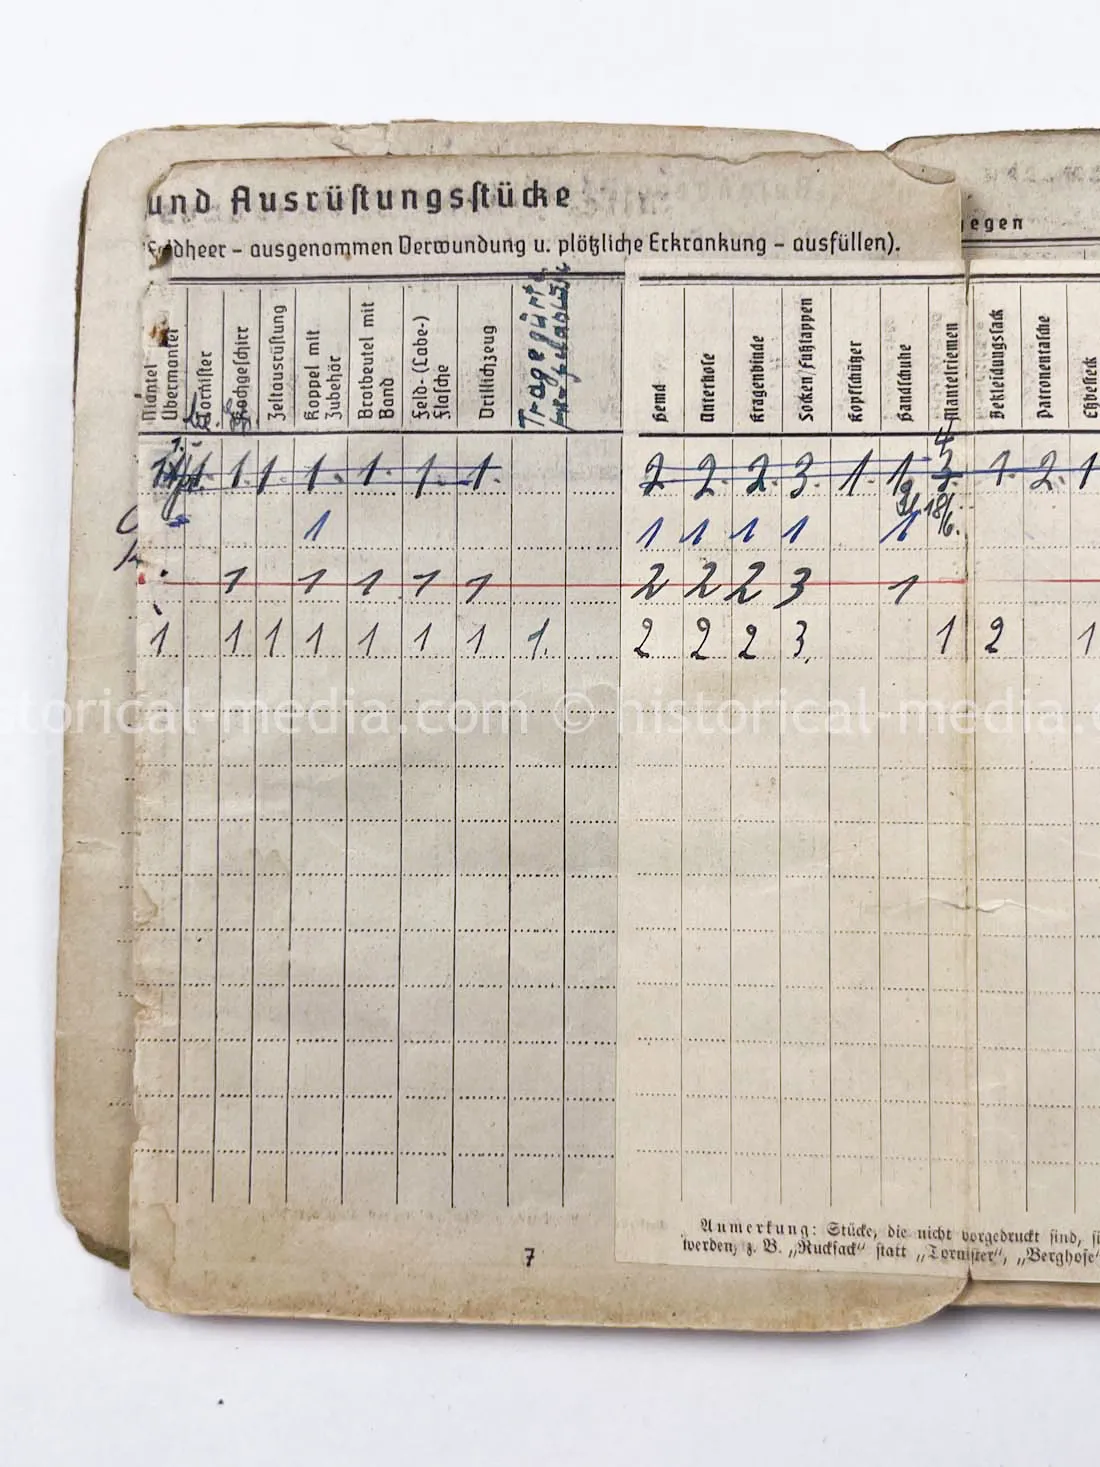 und Ausrüstungsstücke
egen
dheer – ausgenommen Verwundung u. plötzliche Erkrankung – ausfüllen).
Mantel
Übermantel
Tornister
Kochgeschirr
Zeltausrüstung
Koppel mit
Zubehör
Brotbeutel mit
Band
Feld- (Labe-)
Flasche
Drillichzeug
Hemd
Unterhose
Kragenbinde
Socken/Fußlappen
Kopfschützer
Handschuhe
Mantelriemen
Bekleidungssack
Patronentasche
Eßbesteck
1 1. 1 1. 1. 1. 1. 2 2. 2. 3. 1. 1 3. 1. 2. 1
18/6.
1 1 1 1 1 1
1 1 1 1 1 2 2 2 3 1
1 1 1 1 1 1 1 1. 2 2 2 3. 1 2 1
historical-media.com © historical-media.
Anmerkung: Stücke, die nicht vorgedruckt sind,
werden, z. B. „Rucksack“ statt „Tornister“, „Berghose“
7